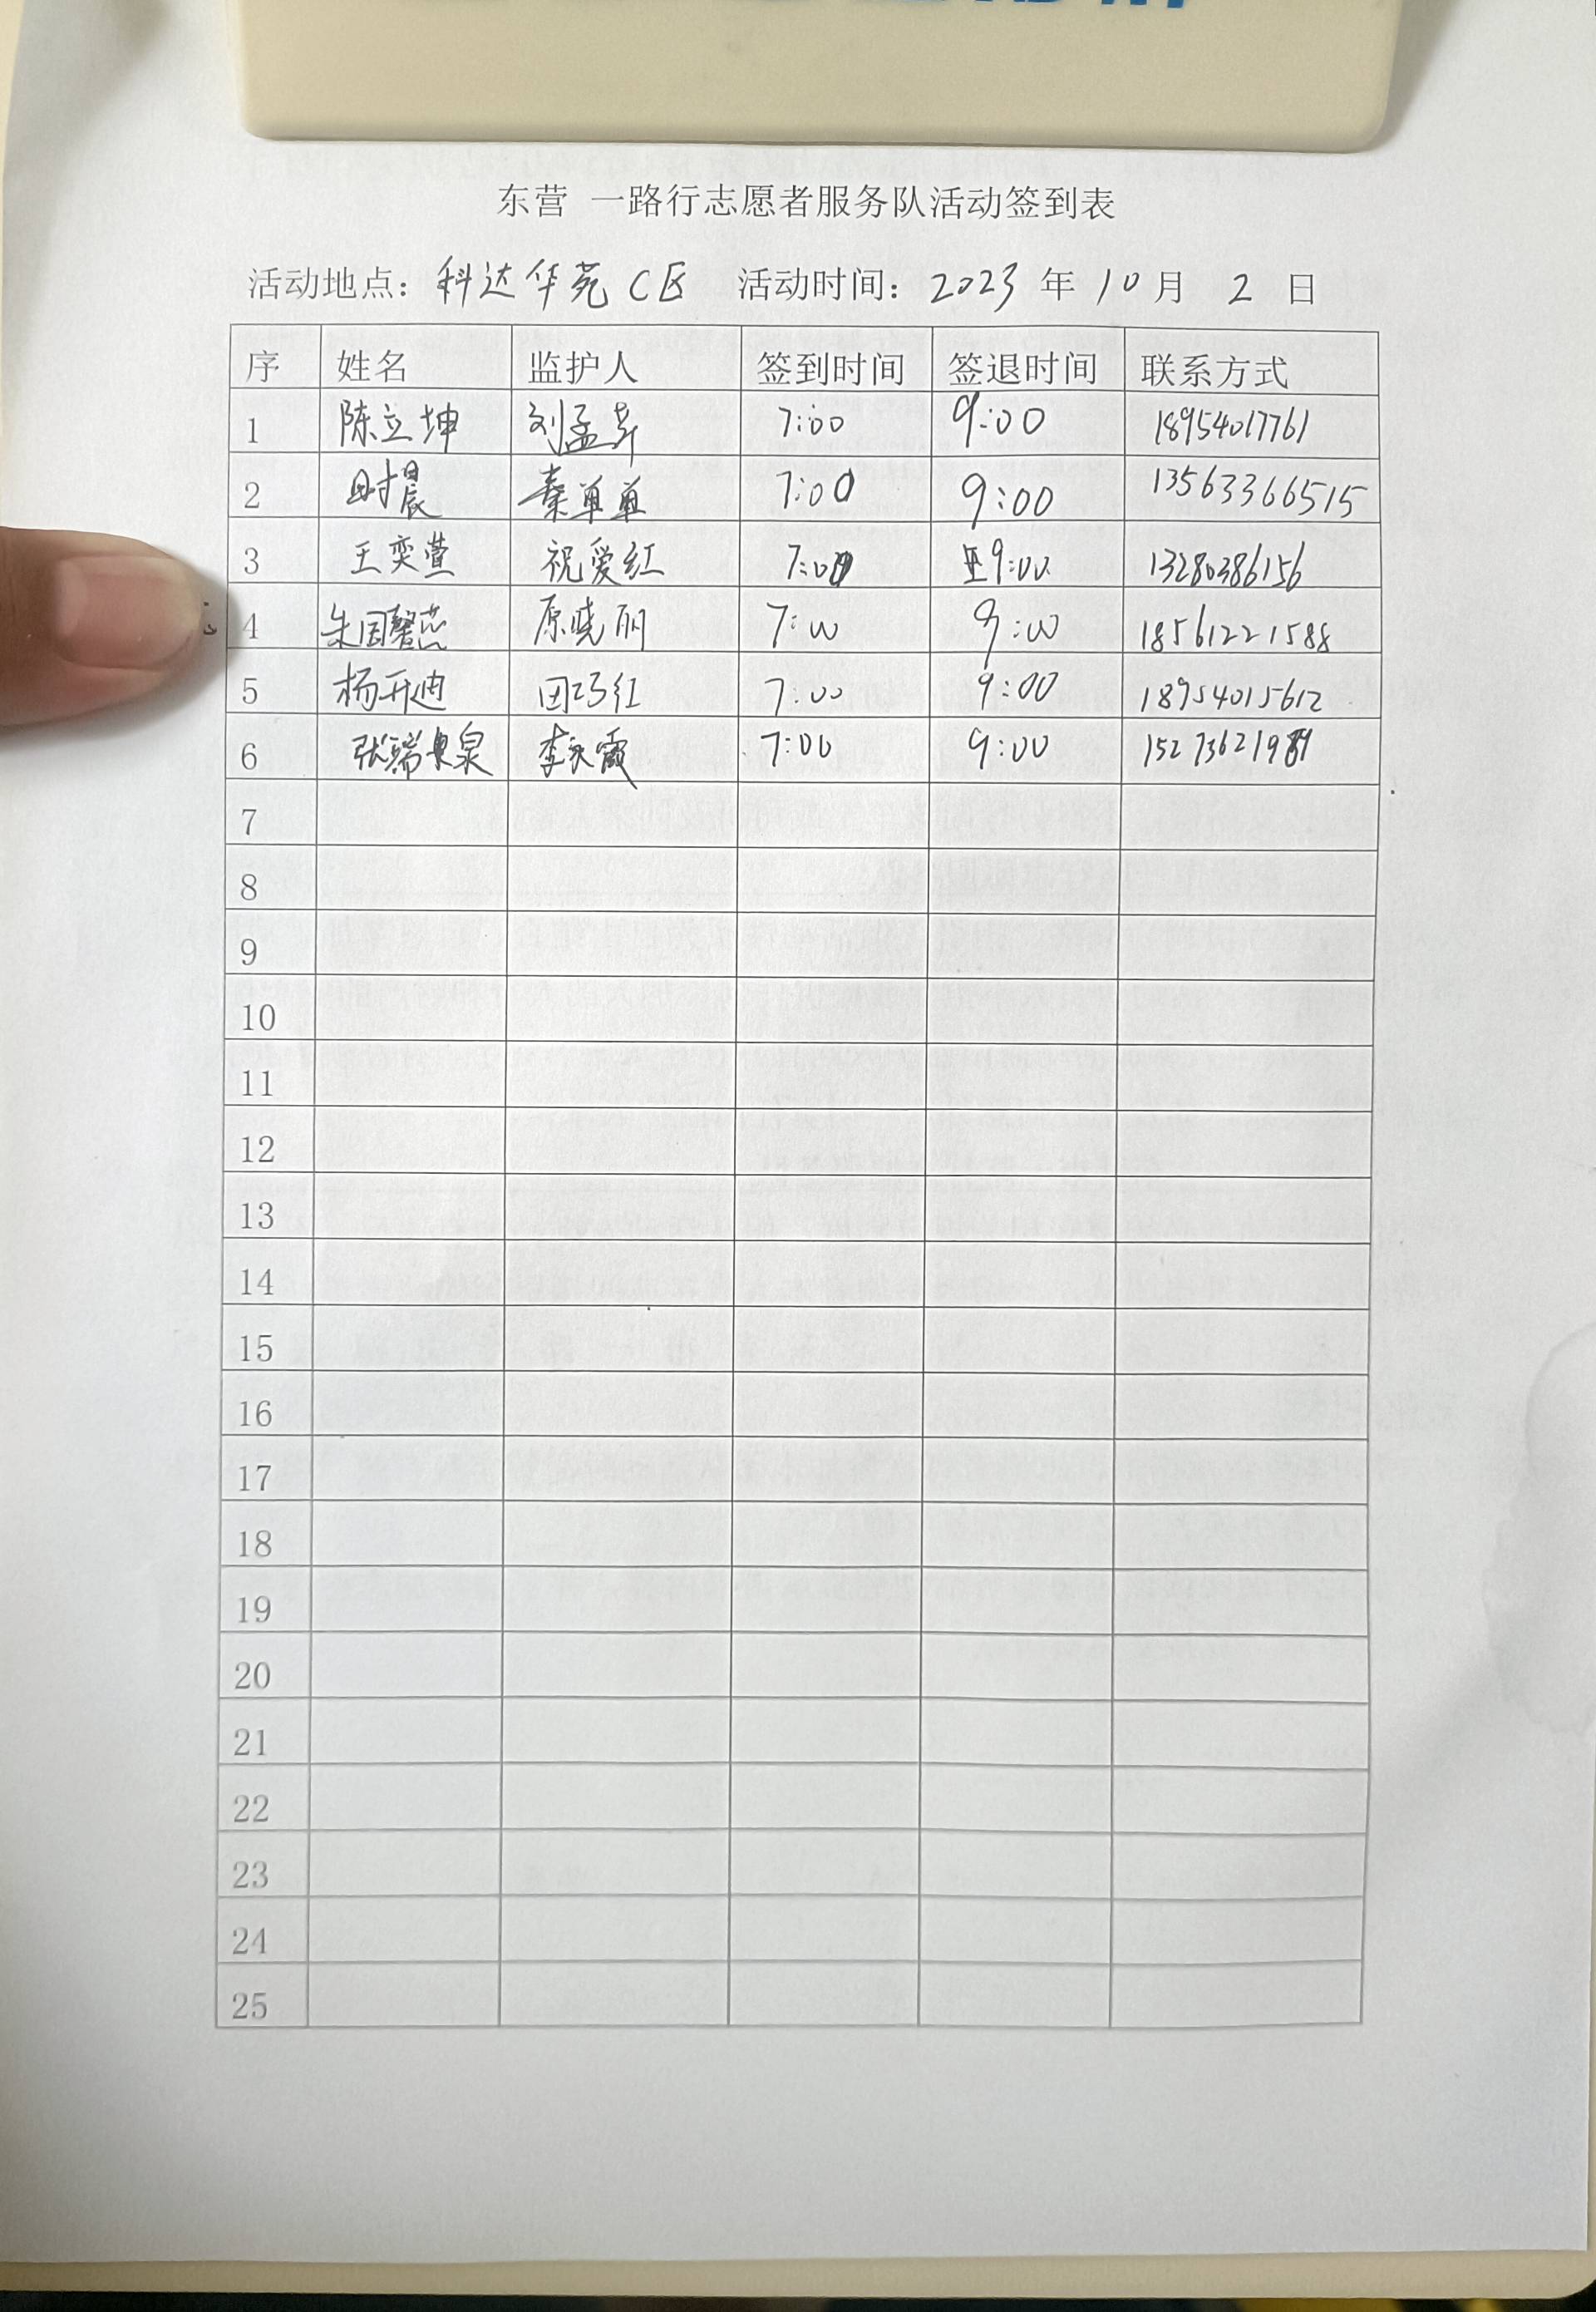 东营 一路行志愿者服务队活动签到表
活动地点：科达华苑C区 活动时间：2023年10月2日
序 姓名 监护人 签到时间 签退时间 联系方式
1 陈立坤 刘孟 7:00 9:00 18954017761
2 时晨 秦单单 7:00 9:00 13563366515
3 王奕萱 祝爱红 7:00 9:00 13280386156
4 朱国馨蕊 原晓丽 7:00 9:00 18561221588
5 杨开迪 田巧红 7:00 9:00 18954015612
6 张端 泉 李永霞 7:00 9:00
7
8
9
10
11
12
13
14
15
16
17
18
19
20
21
22
23
24
25